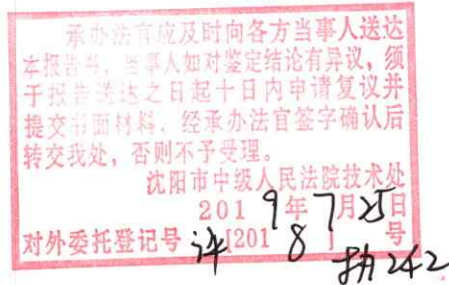 承办法官应及时向各方当事人送达
本报告书，当事人如对鉴定结论有异议，须
于报告送达之日起十日内申请复议并
提交书面材料，经承办法官签字确认后
转交我处，否则不予受理。
沈阳市中级人民法院技术处
2019年7月25日
对外委托登记号 评[2018] 号
执242